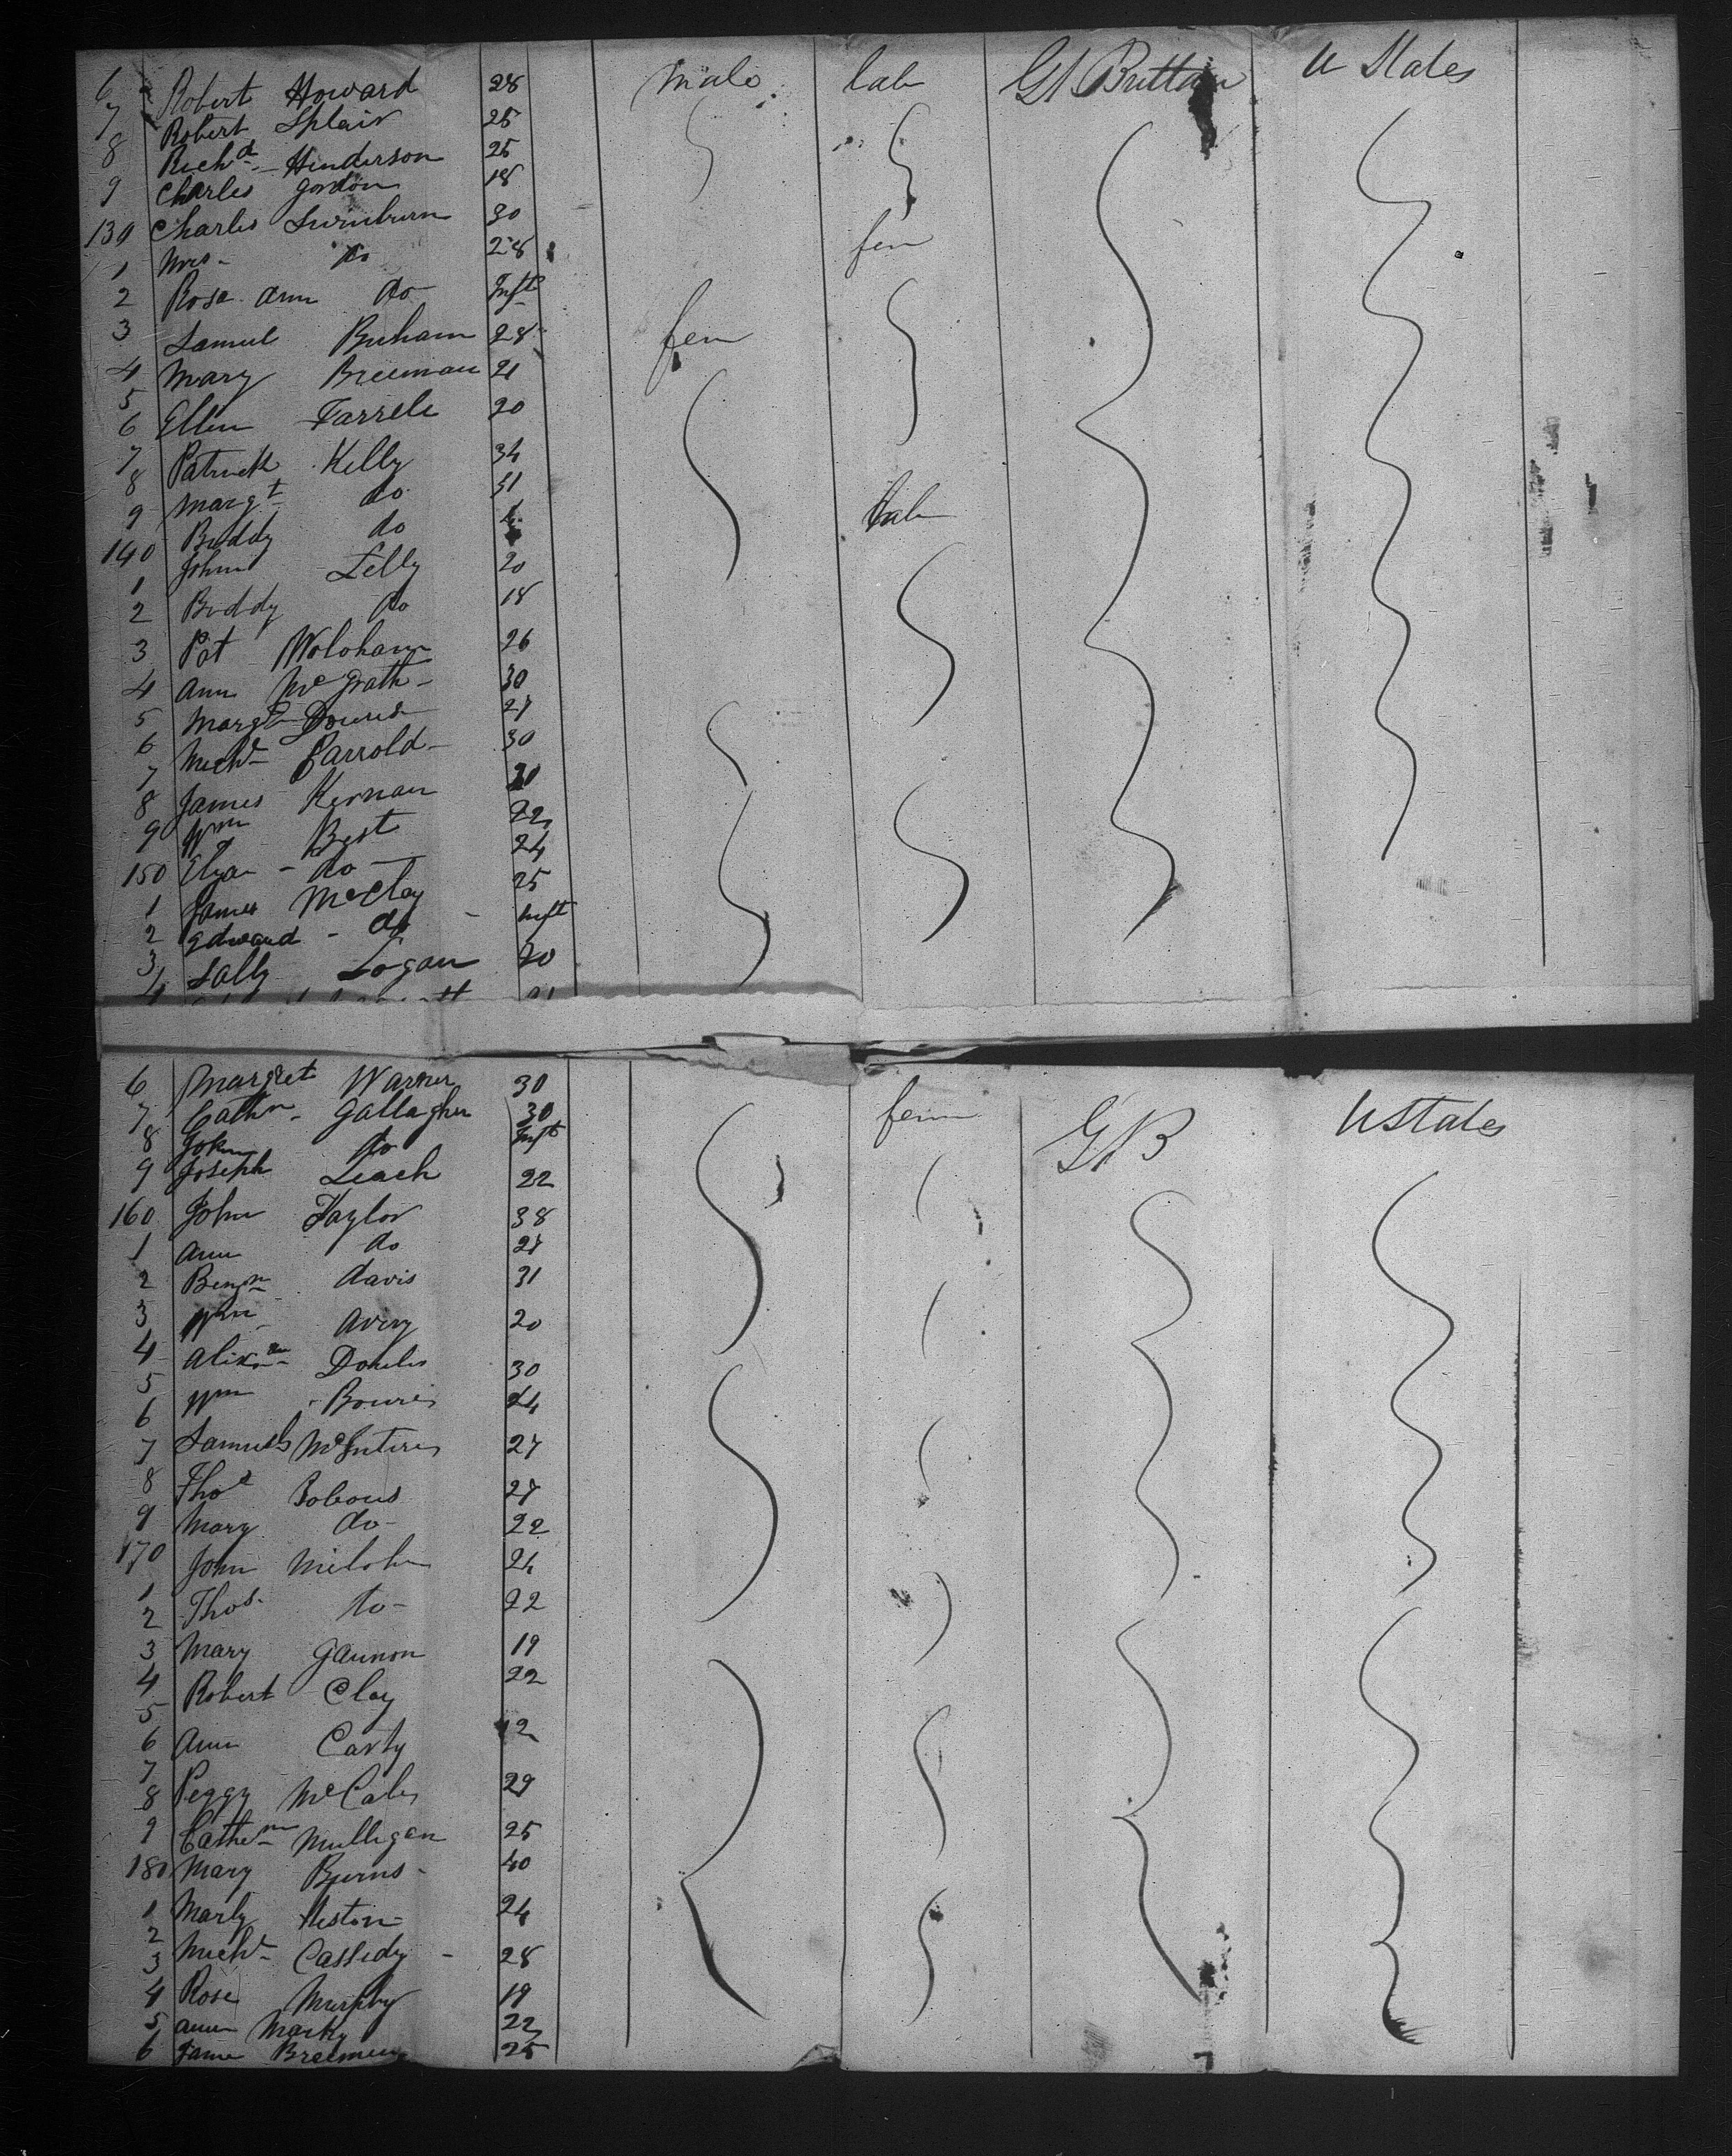 6 Robert Howard 28 Male lab Gt Brittan U States
7 Robert Splair 25
8 Richd Henderson 25
9 Charles Gordon 18
130 Charles Swinburn 30
1 Mrs do 28 fem
2 Rosa Ann do Inft
3 Samuel 28 fem
4 Mary Breeman 21
5
6 Ellen Farrele 20
7 Patrick Kelly 34
8 Margt do 31
9 Biddy do lab
140 John Lelly 20
1 Biddy do 18
2
3 Pat Molohan 26
4 Ann McGrath 30
5 Margt Downs 27
6 Michl Carrold 30
7
8 James Kernan
9 Wm Best 22
150 Eliza do 24
1 James McClay 25
2 Edward do Inft
3 Sally Logan 20
4
6 Margret Warner 30 fem GB U States
7 Cathn Gallagher 30
8 John do Inft
9 Joseph Leach 22
160 John Taylor 38
1 Ann do 27
2 Benjn Davis 31
3 Wm Avery 20
4 30
5
6 Wm Bowers 24
7 Samuel McIntire 27
8 Thos 27
9 Mary do 22
170 John 24
1
2 Thos do 22
3 Mary Gannon 19
4 Robert Clay 22
5
6 Ann Carty
7
8 Peggy McCabe 29
9 Cathen Mulligan 25
180 Mary Byrns 40
1 24
2
3 Michl Cassedy 28
4 Rose Murphy 19
5 Ann 22
6 Jame Breemen 25